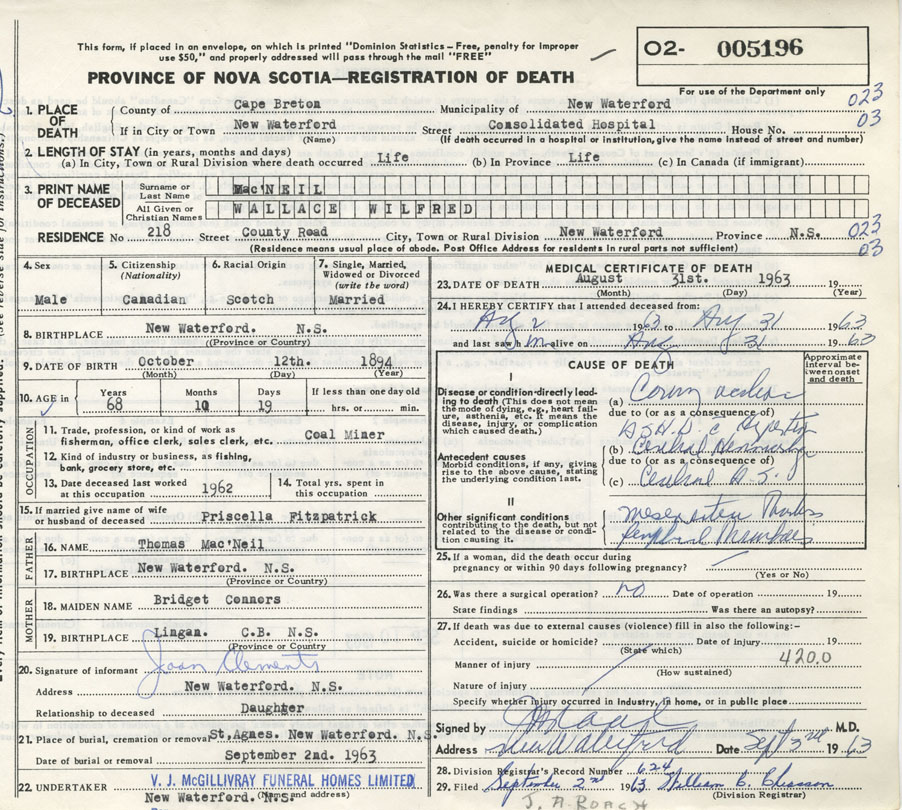 This form, if placed in an envelope, on which is printed "Dominion Statistics – Free, penalty for improper
use $50," and properly addressed will pass through the mail "FREE"
O2- 005196
PROVINCE OF NOVA SCOTIA—REGISTRATION OF DEATH
For use of the Department only
023
03
1. PLACE OF DEATH
County of Cape Breton Municipality of New Waterford
If in City or Town New Waterford Street Consolidated Hospital House No.
(Name) (If death occurred in a hospital or institution, give the name instead of street and number)
2. LENGTH OF STAY (in years, months and days)
(a) In City, Town or Rural Division where death occurred Life (b) In Province Life (c) In Canada (if immigrant)
3. PRINT NAME OF DECEASED
Surname or Last Name Mac'NEIL
All Given or Christian Names WALLACE WILFRED
RESIDENCE No 218 Street County Road City, Town or Rural Division New Waterford Province N.S.
023
03
(Residence means usual place of abode. Post Office Address for residents in rural parts not sufficient)
4. Sex
Male
5. Citizenship (Nationality)
Canadian
6. Racial Origin
Scotch
7. Single, Married, Widowed or Divorced (write the word)
Married
8. BIRTHPLACE New Waterford. N.S.
(Province or Country)
9. DATE OF BIRTH October 12th. 1894
(Month) (Day) (Year)
10. AGE in Years 68 Months 10 Days 19 If less than one day old hrs. or min.
OCCUPATION
11. Trade, profession, or kind of work as fisherman, office clerk, sales clerk, etc. Coal Miner
12. Kind of industry or business, as fishing, bank, grocery store, etc.
13. Date deceased last worked at this occupation 1962
14. Total yrs. spent in this occupation
15. If married give name of wife or husband of deceased Priscella Fitzpatrick
FATHER
16. NAME Thomas Mac'Neil
17. BIRTHPLACE New Waterford. N.S.
(Province or Country)
MOTHER
18. MAIDEN NAME Bridget Connors
19. BIRTHPLACE Lingan. C.B. N.S.
(Province or Country)
20. Signature of informant Joan Clements
Address New Waterford. N.S.
Relationship to deceased Daughter
21. Place of burial, cremation or removal St.Agnes. New Waterford. N.S.
Date of burial or removal September 2nd. 1963
22. UNDERTAKER V. J. McGILLIVRAY FUNERAL HOMES LIMITED
New Waterford. N.S.
(Name and address)
MEDICAL CERTIFICATE OF DEATH
23. DATE OF DEATH August 31st. 1963 19
(Month) (Day) (Year)
24. I HEREBY CERTIFY that I attended deceased from:
Aug 2 1963 to Aug 31 1963
and last saw h im alive on Aug 31 1963
CAUSE OF DEATH
Approximate interval between onset and death
I
Disease or condition directly leading to death (This does not mean the mode of dying, e.g., heart failure, asthenia, etc. It means the disease, injury, or complication which caused death.)
(a)
due to (or as a consequence of)
Antecedent causes
Morbid conditions, if any, giving rise to the above cause, stating the underlying condition last.
(b) Cerebral Hemorrhage
due to (or as a consequence of)
(c) Cerebral A.S.
II
Other significant conditions contributing to the death, but not related to the disease or condition causing it.
25. If a woman, did the death occur during pregnancy or within 90 days following pregnancy?
(Yes or No)
26. Was there a surgical operation? no Date of operation 19
State findings Was there an autopsy?
27. If death was due to external causes (violence) fill in also the following:-
Accident, suicide or homicide? Date of injury 19
(State which)
Manner of injury 420.0
(How sustained)
Nature of injury
Specify whether injury occurred in Industry, in home, or in public place
Signed by M.D.
Address New Waterford Date Sept 3rd 1963
28. Division Registrar's Record Number 624
29. Filed September 2nd 1963
(Division Registrar)
J. A. ROACH